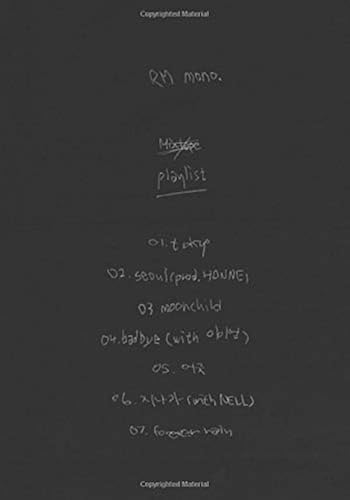 Copyrighted Material
RM mono.
Mixtape
playlist
01. tokyo
02. seoul (prod. HONNE)
03 moonchild
04. badbye (with
05. 어긋
06. 지나가 (with NELL)
07. forever rain
Copyrighted Material